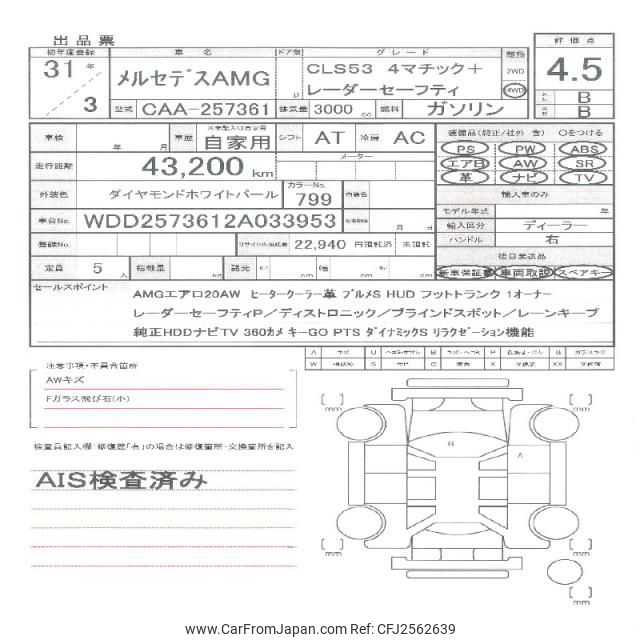 出品票
初年度登録 車名 ドア数 グレード 駆動 評価点
31年 メルセデスAMG CLS53 4マチック+ 2WD 4.5
3 D レーダーセーフティ 4WD B
型式 CAA-257361 排気量 3000 cc 燃料 ガソリン B
車検 年 月 車歴 自家用 シフト AT 冷房 AC 装備品(純正/社外 含) Oをつける
PS PW ABS
走行距離 43,200 km メーター エアB AW SR
革 ナビ TV
外装色 ダイヤモンドホワイトパール カラーNo. 799 内装色 輸入車のみ
モデル年式 年
車台No. WDD2573612A033953 月 日 輸入区分 ディーラー
登録No. リサイクル預託金 22,940 円預託済 未預託 ハンドル 右
後日発送品
定員 5人 積載量 kg 諸元 長 cm 幅 cm 高 cm 新車保証書 車両取説 スペアキー
セールスポイント
AMGエアロ20AW ヒータークーラー革 ブルメS HUD フットトランク 1オーナー
レーダーセーフティP/ディストロニック/ブラインドスポット/レーンキープ
純正HDDナビTV 360カメ キーGO PTS ダイナミックS リラクゼーション機能
A キズ U B P G ガラスキズ
W S サビ C 腐食 X 交換要 XX 交換済
注意事項・不具合箇所
AWキズ
Fガラス飛び石(小)
検査員記入欄:修復歴「有」の場合は修復箇所・交換箇所を記入
AIS検査済み
mm mm
G A
mm mm
mm
www.CarFromJapan.com Ref: CFJ2562639